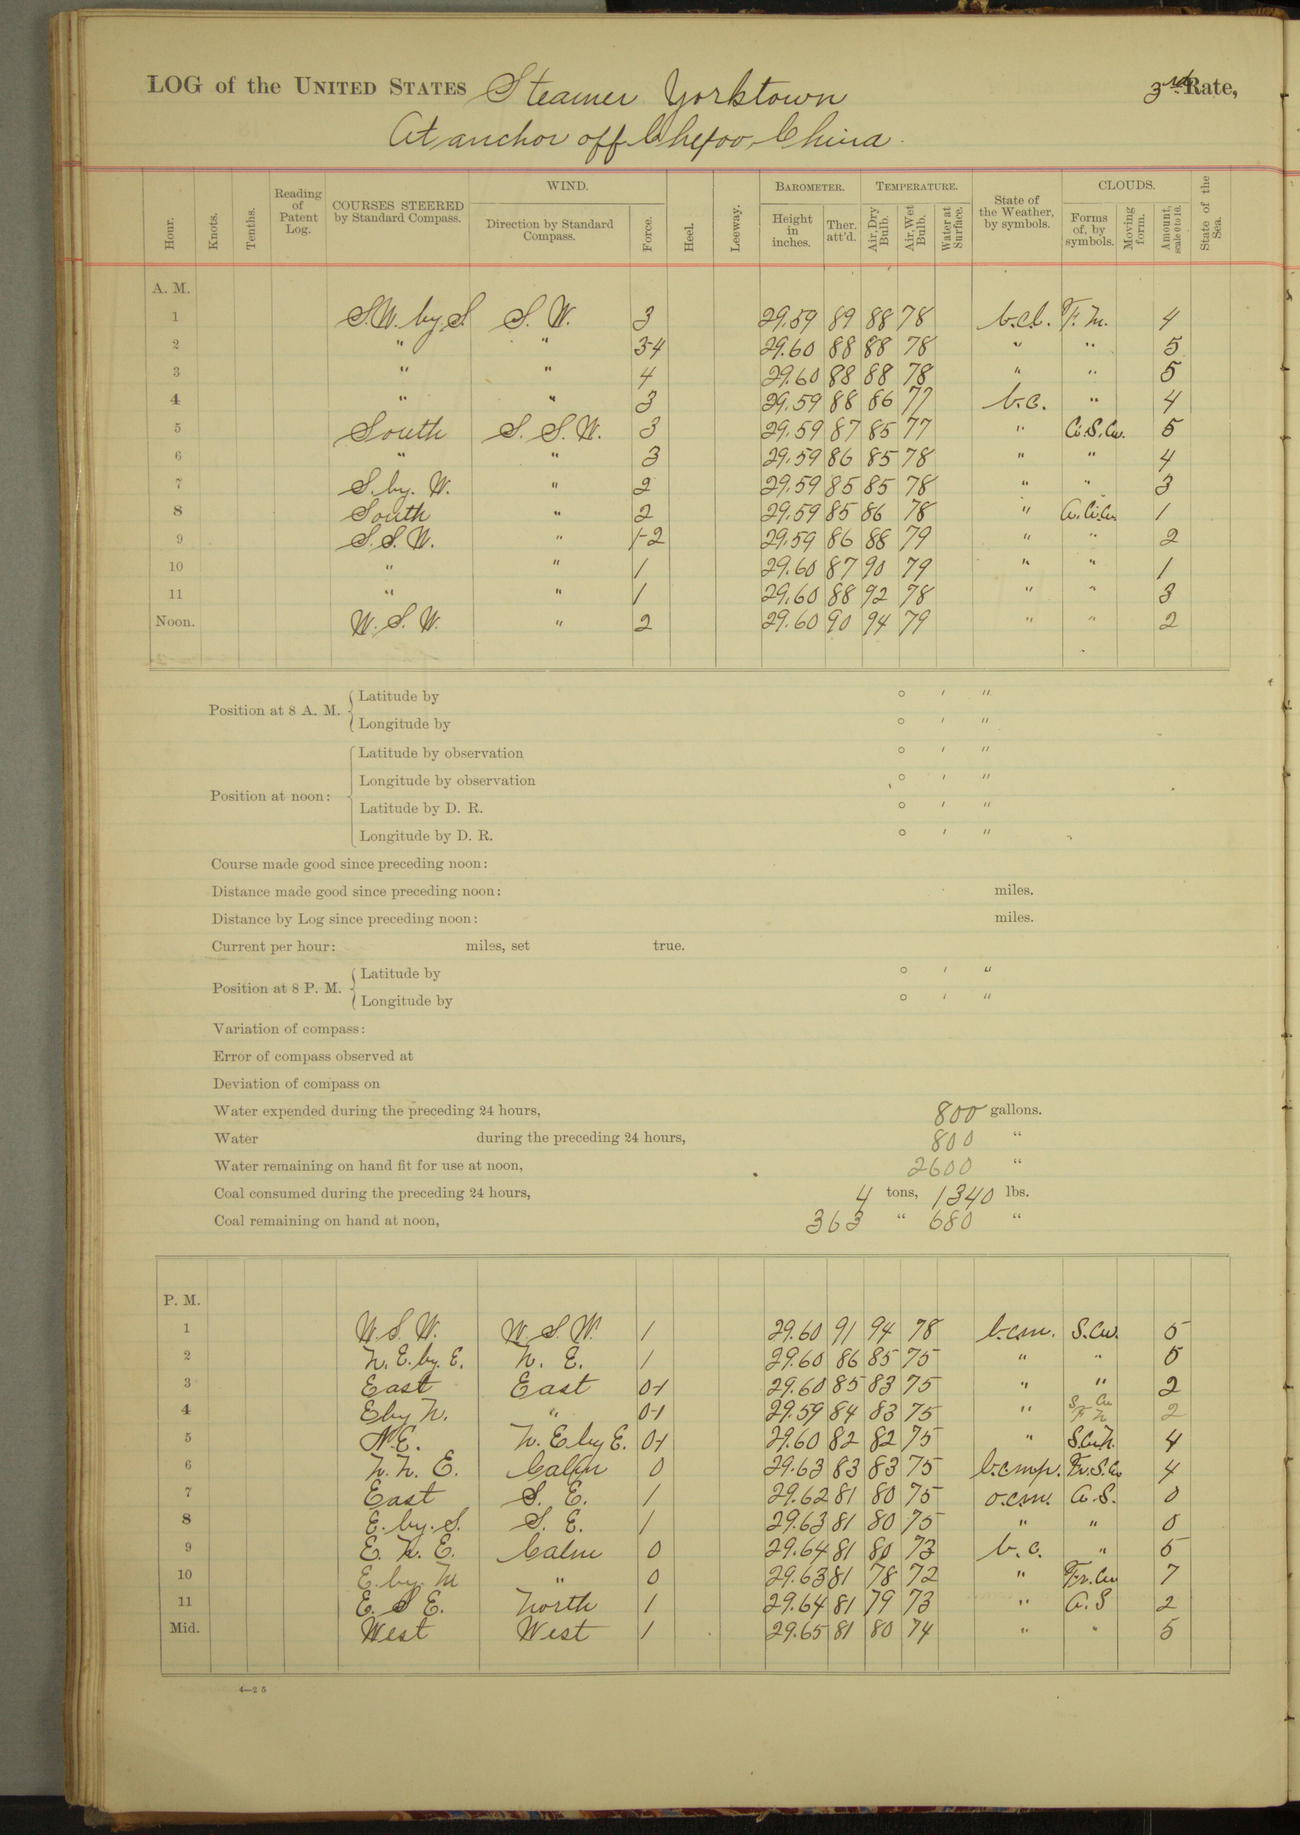 LOG of the UNITED STATES Steamer Yorktown 3rd Rate,
At anchor off Chefoo, China.
Hour. Knots. Tenths. Reading of Patent Log. COURSES STEERED by Standard Compass. WIND. Direction by Standard Compass. Force. Heel. Leeway. BAROMETER. Height in inches. Ther. att'd. TEMPERATURE. Air, Dry Bulb. Air, Wet Bulb. Water at Surface. State of the Weather, by symbols. CLOUDS. Forms of, by symbols. Moving form. Amount, scale 0 to 10. State of the Sea.
A. M.
1 S.W. by S. S. W. 3 29.59 89 88 78 b.c.l. F. N. 4
2 " " 3-4 29.60 88 88 78 " " 5
3 " " 4 29.60 88 88 78 " " 5
4 " " 3 29.59 88 86 77 b.c. " 4
5 South S. S. W. 3 29.59 87 85 77 " Ci.S.Cu. 5
6 " " 3 29.59 86 85 78 " " 4
7 S. by. W. " 2 29.59 85 85 78 " " 3
8 South " 2 29.59 85 86 78 " 1
9 S. S. W. " 1-2 29.59 86 88 79 " " 2
10 " " 1 29.60 87 90 79 " " 1
11 " " 1 29.60 88 92 78 " " 3
Noon. W. S. W. " 2 29.60 90 94 79 " " 2
Position at 8 A. M. Latitude by ° ′ ″
Longitude by ° ′ ″
Position at noon: Latitude by observation ° ′ ″
Longitude by observation ° ′ ″
Latitude by D. R. ° ′ ″
Longitude by D. R. ° ′ ″
Course made good since preceding noon:
Distance made good since preceding noon: miles.
Distance by Log since preceding noon: miles.
Current per hour: miles, set true.
Position at 8 P. M. Latitude by ° ′ ″
Longitude by ° ′ ″
Variation of compass:
Error of compass observed at
Deviation of compass on
Water expended during the preceding 24 hours, 800 gallons.
Water during the preceding 24 hours, 800 "
Water remaining on hand fit for use at noon, 2600 "
Coal consumed during the preceding 24 hours, 4 tons, 1340 lbs.
Coal remaining on hand at noon, 363 " 680 "
P. M.
1 W. S. W. W. S. W. 1 29.60 91 94 78 b.c.m. S.Cu. 5
2 N. E. by. E. N. E. 1 29.60 86 85 75 " " 5
3 East East 0-1 29.60 85 83 75 " " 2
4 E by N. " 0-1 29.59 84 83 75 " S Cu F N 2
5 N.E. N. E by E. 0-1 29.60 82 82 75 " S.Cu.N. 4
6 N. N. E. Calm 0 29.63 83 83 75 b.c.m.p. Fr.S.Cu 4
7 East S. E. 1 29.62 81 80 75 o.c.m. 0
8 E. by. S. S. E. 1 29.63 81 80 75 " " 0
9 E. N. E. Calm 0 29.64 81 80 73 b.c. " 5
10 E. by. N " 0 29.63 81 78 72 " Fr.Cu 7
11 E. S E. North 1 29.64 81 79 73 " 2
Mid. West West 1 29.65 81 80 74 " " 5
4—25